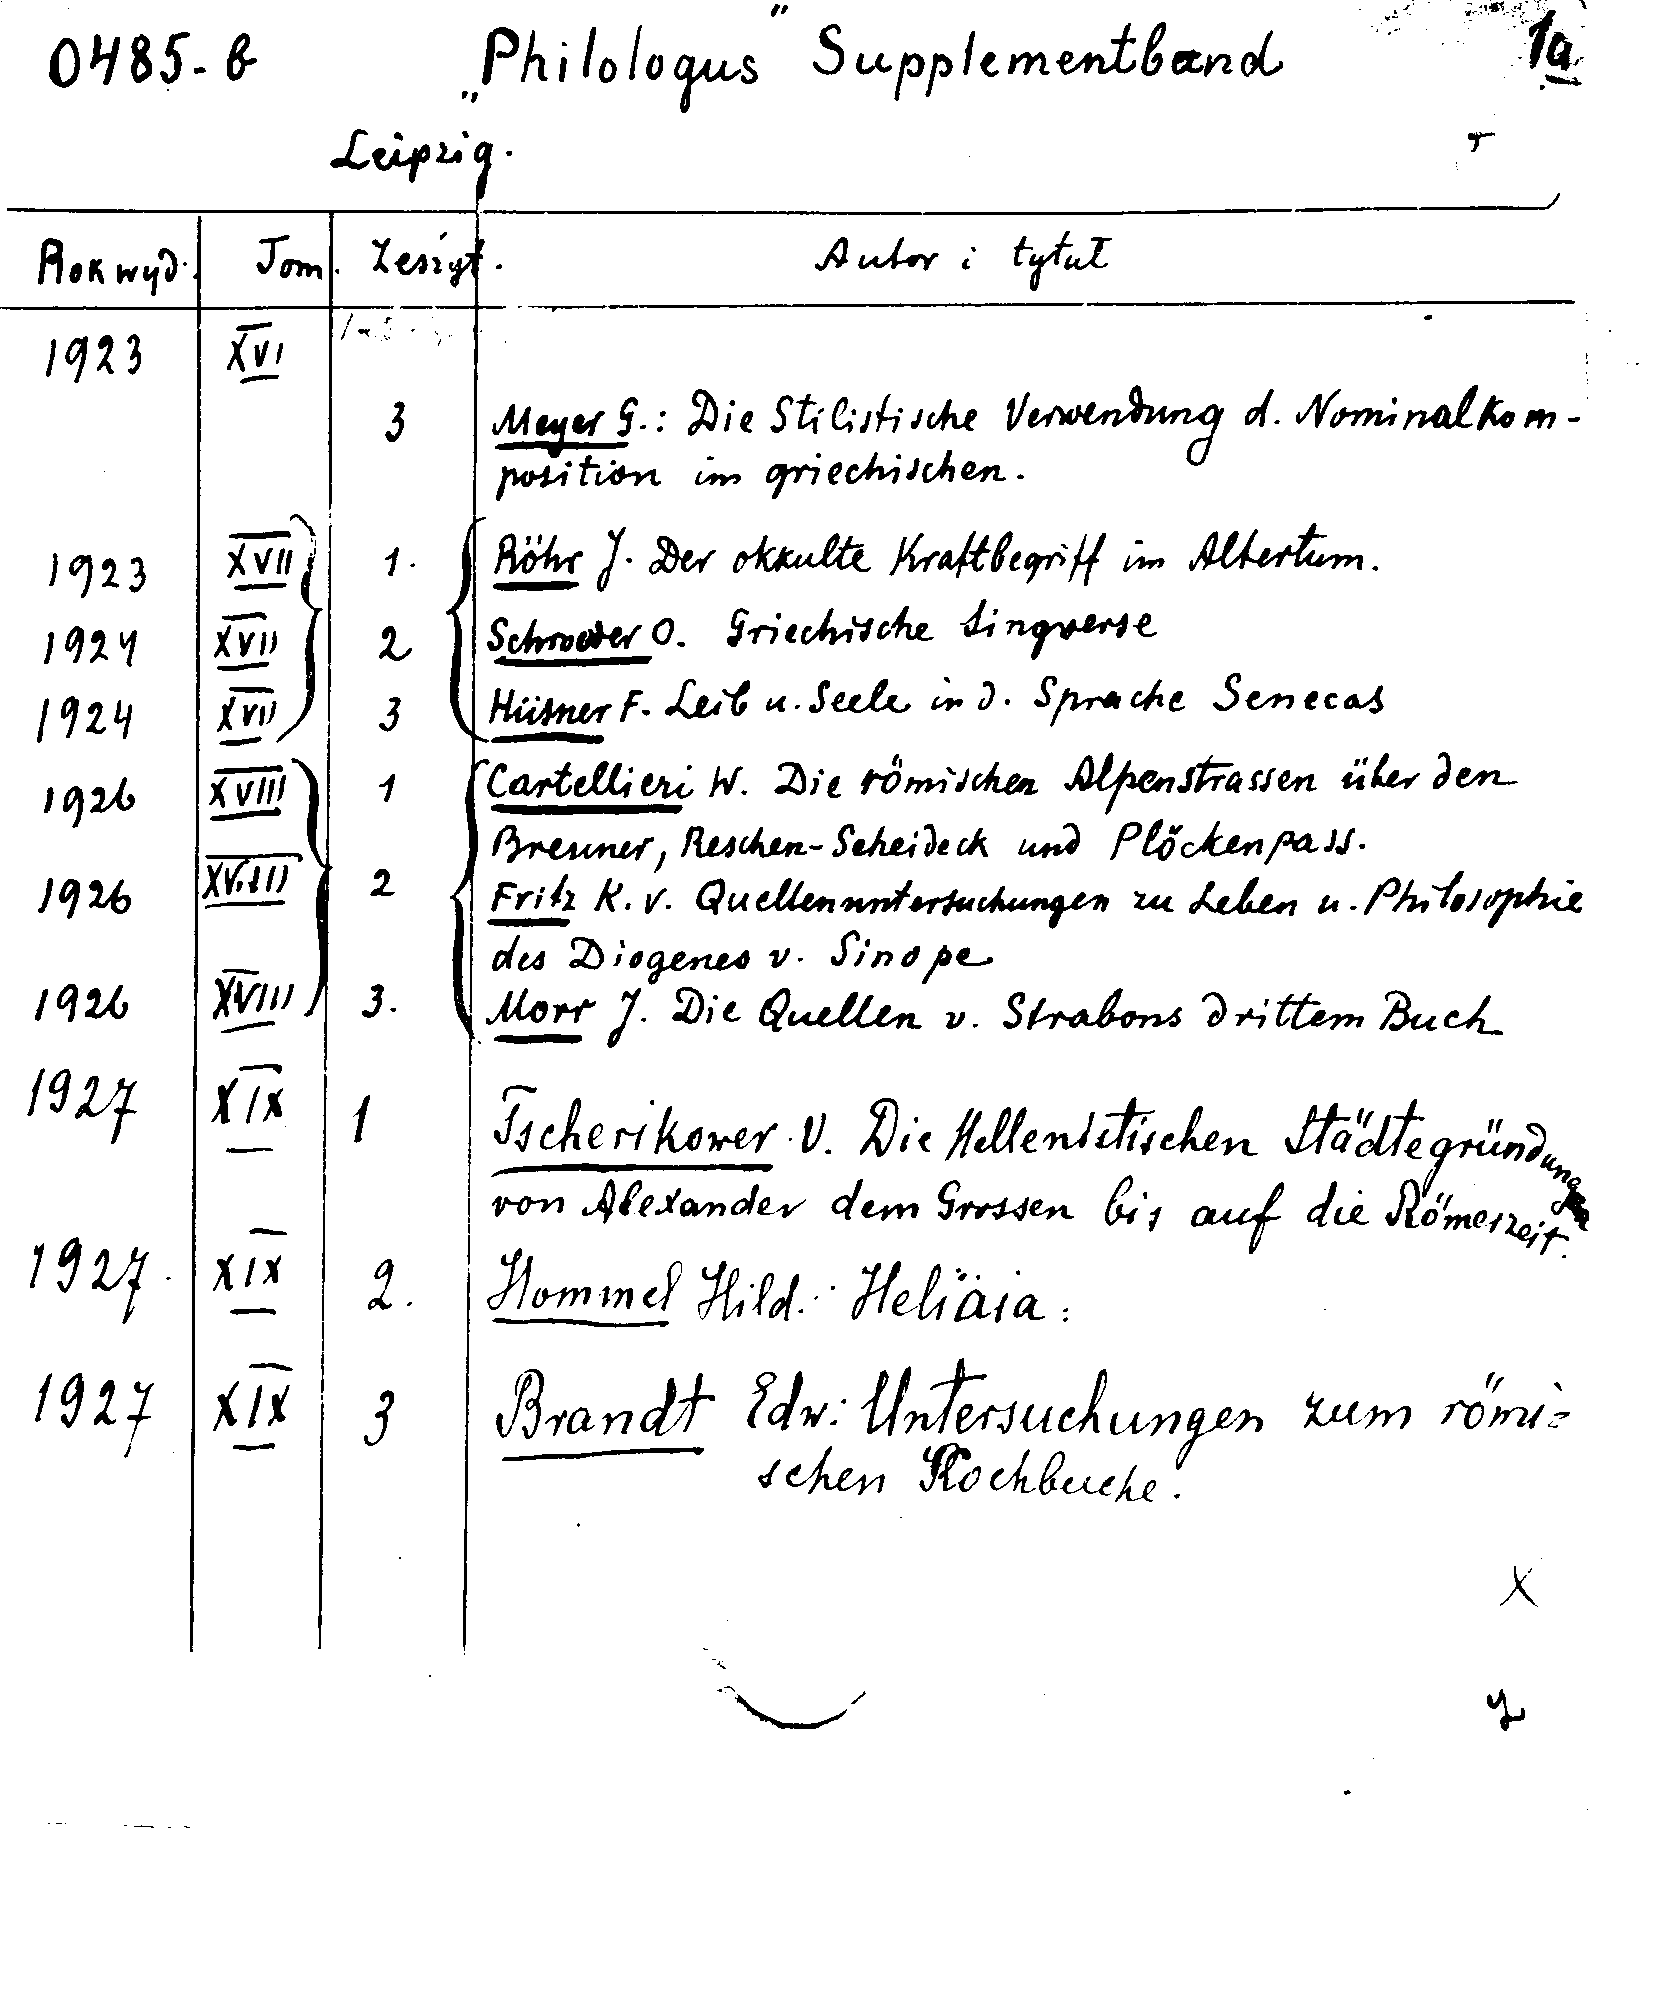 0485-b „Philologus" Supplementband 1a
Leipzig.
Rok wyd. Tom. Zeszyt. Autor i tytuł
1923 XVI
3 Meyer G.: Die Stilistische Verwendung d. Nominalkom-
position im griechischen.
1923 XVII 1. Röhr J. Der okkulte Kraftbegriff im Altertum.
1924 XVII 2 Schroeder O. Griechische Singverse
1924 XVII 3 Hüsner F. Leib u. Seele in d. Sprache Senecas
1926 XVIII 1 Cartellieri W. Die römischen Alpenstrassen über den
Brenner, Reschen-Scheideck und Plöckenpass.
1926 XVIII 2 Fritz K. v. Quellenuntersuchungen zu Leben u. Philosophie
des Diogenes v. Sinope
1926 XVIII 3. Morr J. Die Quellen v. Strabons drittem Buch
1927 XIX 1 Tscherikower V. Die Hellenistischen Städtegründungen
von Alexander dem Grossen bis auf die Römerzeit.
1927 XIX 2. Hommel Hild.: Heliäia.
1927 XIX 3 Brandt Edw: Untersuchungen zum römi-
schen Kochbuche.
X